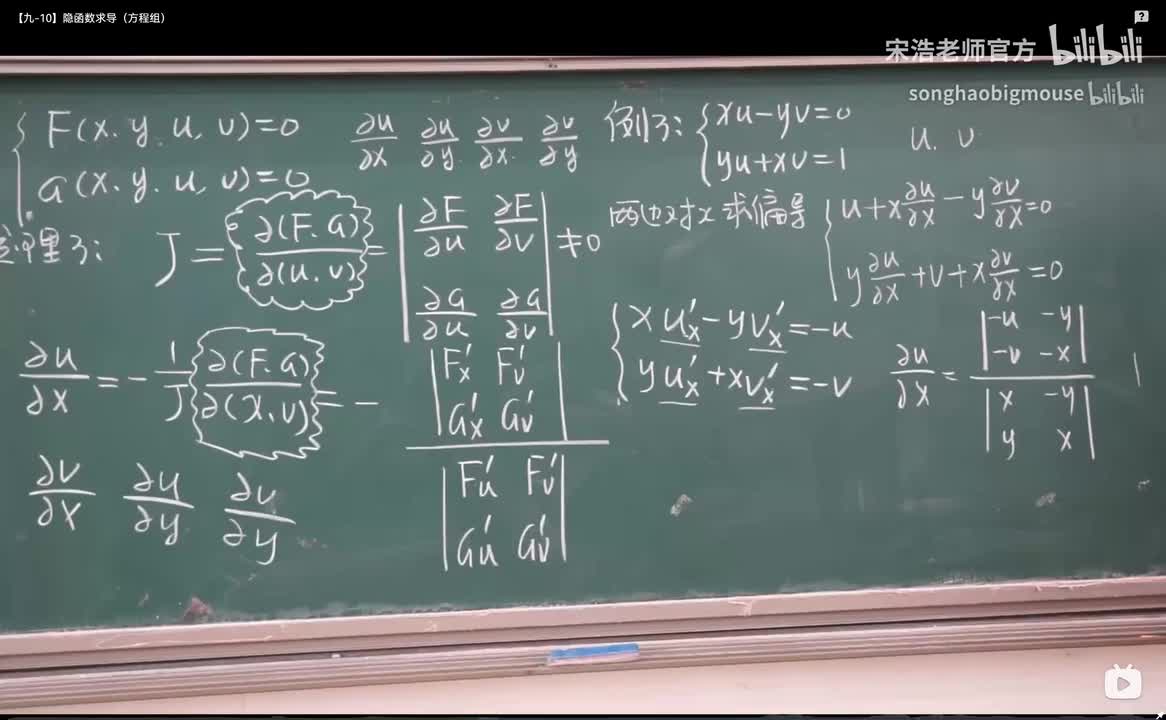 【九-10】隐函数求导（方程组）
宋浩老师官方 bilibili
songhaobigmouse bilibili
{ F(x. y. u, v)=0
G(x. y. u, v)=0
∂u/∂x ∂u/∂y ∂v/∂x ∂v/∂y
理3: J = ∂(F.G)/∂(u.v) = | ∂F/∂u ∂F/∂v |
| ∂G/∂u ∂G/∂v | ≠0
∂u/∂x = - 1/J ∂(F.G)/∂(x.v) = - | F'x F'v |
| G'x G'v |
/
| F'u F'v |
| G'u G'v |
∂v/∂x ∂u/∂y ∂v/∂y
例3: { xu-yv=0
yu+xv=1
u. v
两边对x求偏导 { u+x∂u/∂x-y∂v/∂x=0
y∂u/∂x+v+x∂v/∂x=0
{ x u'x-y v'x=-u
y u'x+x v'x=-v
∂u/∂x = | -u -y |
| -v -x |
/
| x -y |
| y x |